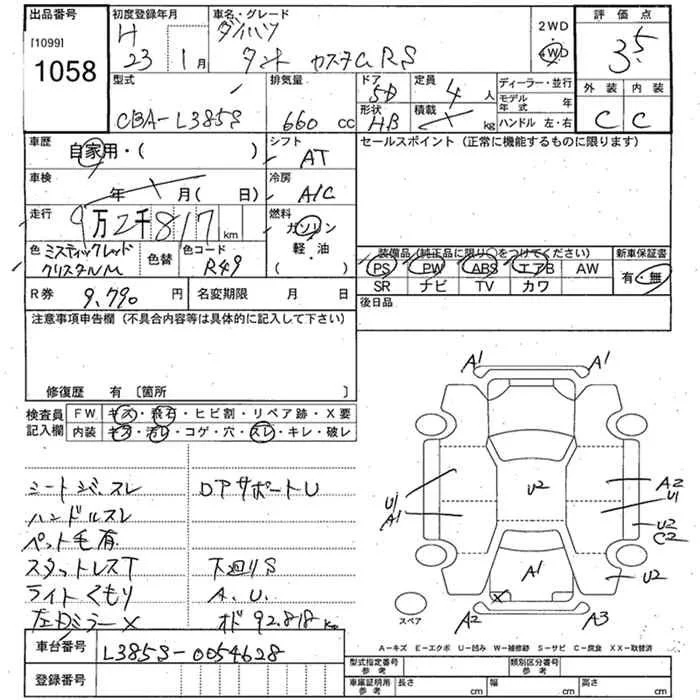 出品番号
[1099]
1058
初度登録年月
H 23年 1月
車名・グレード
ダイハツ
タント カスタム RS
2WD
4WD
評価点
3.5
外装 内装
C C
型式
CBA-L385S
排気量
660 cc
ドア
5D
形状
HB
定員
4人
積載
kg
ディーラー・並行
モデル年式 年
ハンドル 左・右
車歴
自家用・( )
シフト
AT
セールスポイント (正常に機能するものに限ります)
車検
年 月( 日)
冷房
A/C
走行
9万2千817km
燃料
ガソリン
軽・油
( )
色
ミスティックレッド
クリスタルM
色替
色コード
R49
装備品(純正品に限り○をつけてください)
PS PW ABS エアB AW
SR ナビ TV カワ
新車保証書
有・無
R券 9,790円
名変期限 月 日
後日品
注意事項申告欄 (不具合内容等は具体的に記入して下さい)
修復歴 有 〔箇所 〕
検査員記入欄
FW キズ・飛石・ヒビ割・リペア跡・X要
内装 キズ・汚レ・コゲ・穴・スレ・キレ・破レ
シートシミ、スレ
ドアサポートU
ハンドルスレ
ペット毛有
スタットレスT
下廻りS
ライトくもり
A.U.
左ドアミラーX
オド 92,818km
A1 A1
U1
A1
U2
A2
U1
U2
C2
A1
X
U2
A2 A3
スペア
車台番号
L385S-0054628
登録番号
A-キズ E-エクボ U-凹み W-補修跡 S-サビ C-腐食 XX-取替済
型式指定番号 参考
類別区分番号 参考
車庫証明用 参考
長さ cm 幅 cm 高さ cm